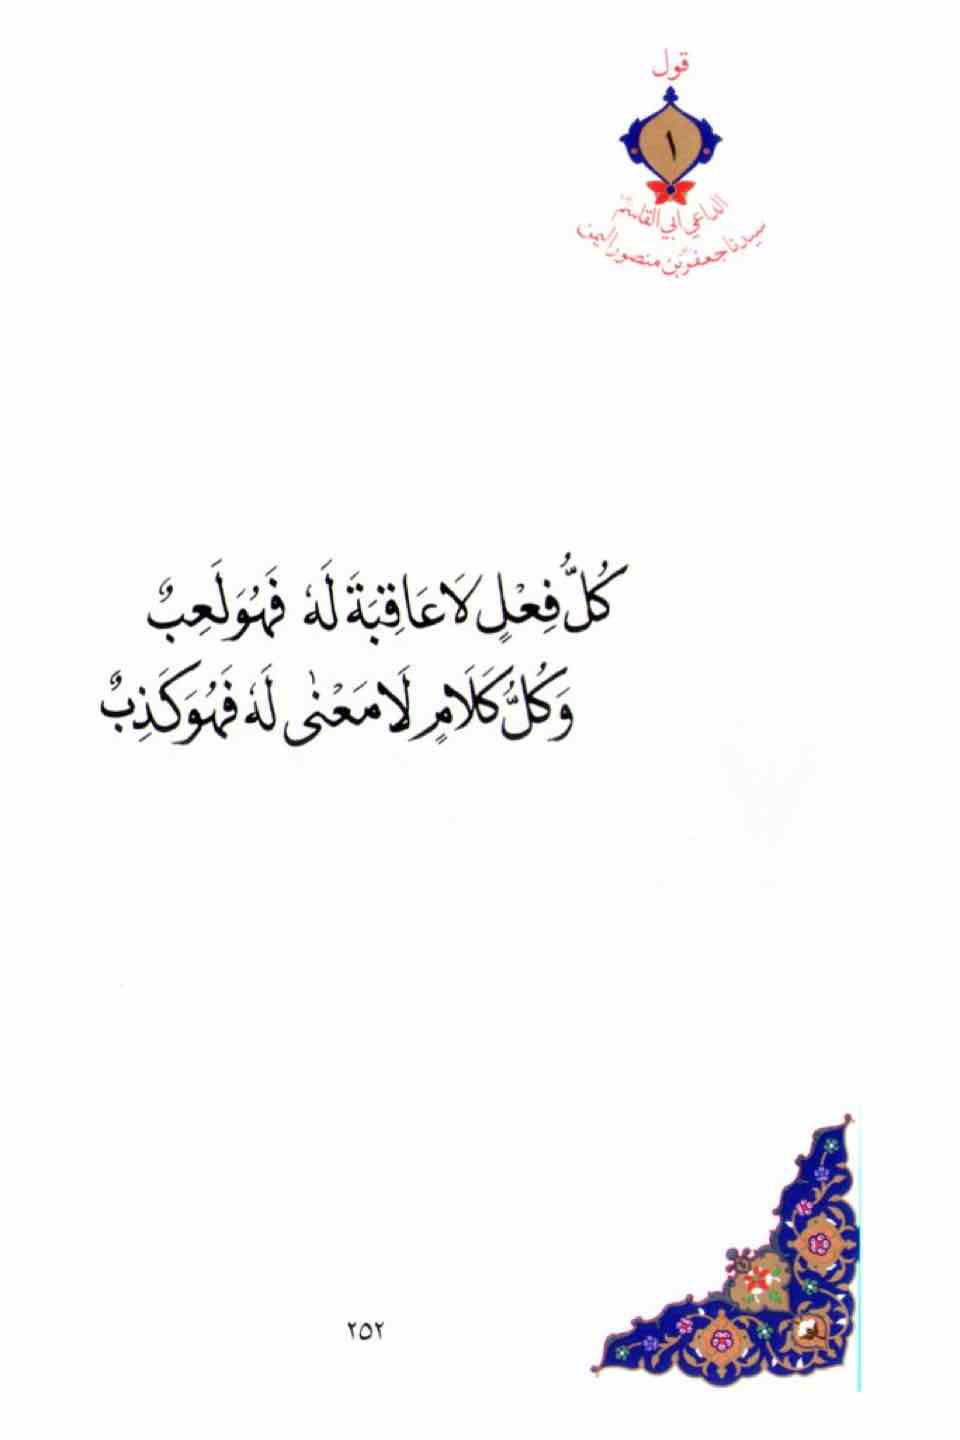 قول
١
الداعي ابي القاسم
سيدنا جعفر بن منصور اليمن
كُلُّ فِعْلٍ لَا عَاقِبَةَ لَهُ فَهُوَ لَعِبٌ
وَكُلُّ كَلَامٍ لَا مَعْنٰى لَهُ فَهُوَ كَذِبٌ
٢٥٢